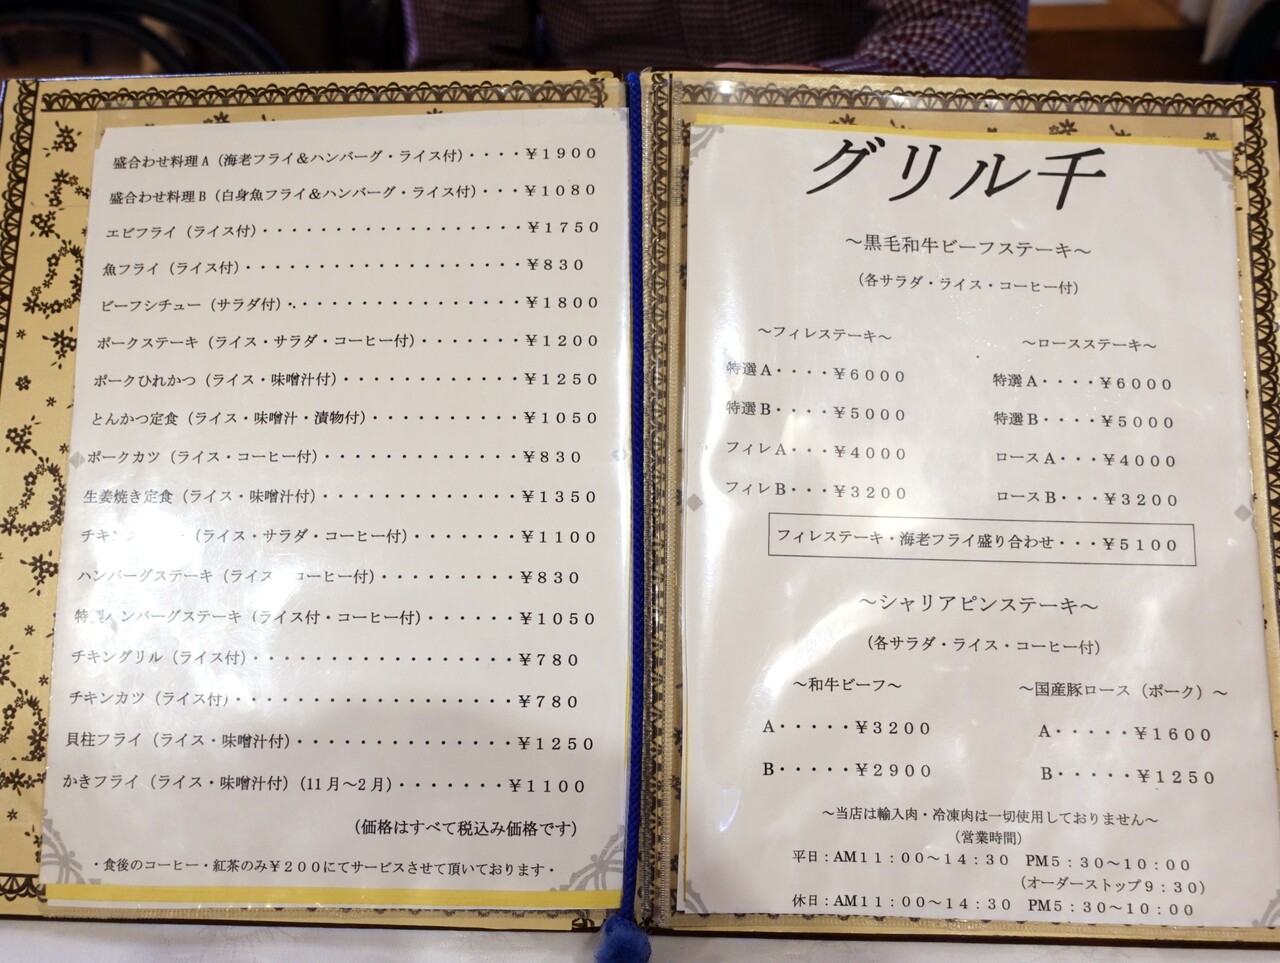 盛合わせ料理A（海老フライ＆ハンバーグ・ライス付）・・・・￥1900
盛合わせ料理B（白身魚フライ＆ハンバーグ・ライス付）・・・￥1080
エビフライ（ライス付）・・・・・・・・・・・・・・・・・・￥1750
魚フライ（ライス付）・・・・・・・・・・・・・・・・・・・￥830
ビーフシチュー（サラダ付）・・・・・・・・・・・・・・・・￥1800
ポークステーキ（ライス・サラダ・コーヒー付）・・・・・・・￥1200
ポークひれかつ（ライス・味噌汁付）・・・・・・・・・・・・￥1250
とんかつ定食（ライス・味噌汁・漬物付）・・・・・・・・・・￥1050
ポークカツ（ライス・コーヒー付）・・・・・・・・・・・・・￥830
生姜焼き定食（ライス・味噌汁付）・・・・・・・・・・・・・￥1350
チキン（ライス・サラダ・コーヒー付）・・・・・・・￥1100
ハンバーグステーキ（ライス・コーヒー付）・・・・・・・・・￥830
特製ハンバーグステーキ（ライス付・コーヒー付）・・・・・・￥1050
チキングリル（ライス付）・・・・・・・・・・・・・・・・・￥780
チキンカツ（ライス付）・・・・・・・・・・・・・・・・・・￥780
貝柱フライ（ライス・味噌汁付）・・・・・・・・・・・・・・￥1250
かきフライ（ライス・味噌汁付）（11月～2月）・・・・・・・￥1100
（価格はすべて税込み価格です）
・食後のコーヒー・紅茶のみ￥200にてサービスさせて頂いております・
グリル千
～黒毛和牛ビーフステーキ～
（各サラダ・ライス・コーヒー付）
～フィレステーキ～
特選A・・・・￥6000
特選B・・・・￥5000
フィレA・・・￥4000
フィレB・・・￥3200
～ロースステーキ～
特選A・・・・￥6000
特選B・・・・￥5000
ロースA・・・￥4000
ロースB・・・￥3200
フィレステーキ・海老フライ盛り合わせ・・・￥5100
～シャリアピンステーキ～
（各サラダ・ライス・コーヒー付）
～和牛ビーフ～
A・・・・・￥3200
B・・・・・￥2900
～国産豚ロース（ポーク）～
A・・・・・￥1600
B・・・・・￥1250
～当店は輸入肉・冷凍肉は一切使用しておりません～
（営業時間）
平日：AM11：00～14：30　PM5：30～10：00
（オーダーストップ9：30）
休日：AM11：00～14：30　PM5：30～10：00